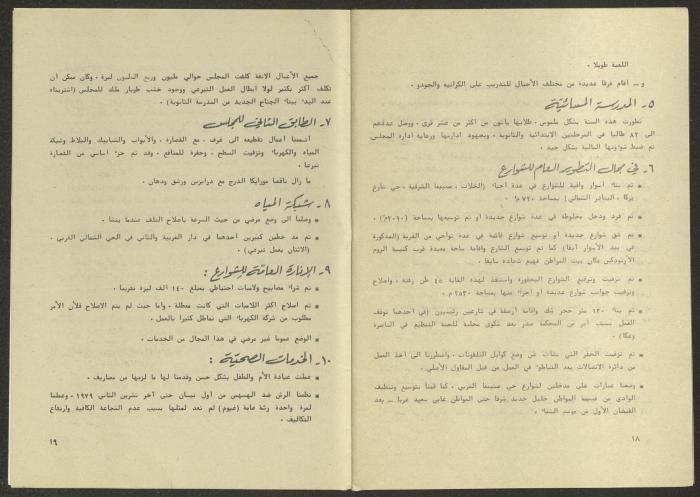 اللعبة طويلا .
و ــ أقام فرقا عديدة من مختلف الأجيال للتدريب على الكراتيه والجودو .
٥ـ المدرسة المسائية
تطورت هذه السنة بشكل ملموس ، طلابها يأتون من أكثر من عشر قرى ، ووصل عددهم
الى ٨٢ طالبا في المرحلتين الابتدائية والثانوية ، وبجهود ادارتها ورعاية ادارة المجلس
تم ضبط شؤونها المالية بشكل جيد .
٦ـ في مجال التطوير العام للشوارع
تم بناء أسوار واقية للشوارع في عدة أحياء (الخلات ، الشرقية ، حي شارع
يركا ، الشمالي) بمساحة ٧٢٠ م٢ .
تم فرد ودحل مخلوطة في عدة شوارع جديدة أو تم توسيعها بمساحة
تم شق شوارع جديدة أو توسيع شوارع قائمة في عدة نواحي من القرية (المذكورة
في بند الأسوار آنفا) كما تم توسيع الشارع واقامة ساحة بعيدة قرب كنيسة الروم
الأرثوذكس مكان بيت المواطن فهيم شحاده سابقا .
تم تزفيت وترقيع الشوارع المحفورة واستنفذ لهذه الغاية ٤٥ طن زفتة ، واصلاح
وتزفيت جوانب شوارع عديدة أو أجزاء منها بمساحة ٢٥٣٠ م .
تم بناء ١٣٠ متر حجر شك واقامة أرصفة في شارعين رئيسيين (في أحدهما توقف
العمل بسبب أمر من المحكمة صدر بعد شكوى محلية للجنة التنظيم في الناصرة
وعكا) .
تم تزفيت الحفر التي نشأت عن وضع كوابل التلفونات ، واضطررنا الى أخذ العمل
من دائرة الاتصالات بعد التباطؤ في العمل من قبل المقاول الأصلي .
وضعنا عبارات على مدخلين لشوارع حي الغربي ، كما قمنا بتوسيع وتنظيف
الوادي من قسيمة المواطن خليل حديد شرقا حتى المواطن غابي سعيد غربا ــ بعد
الفيضان الأول من موسم الشتاء .
١٨
جميع الأعمال الآنفة كلفت المجلس حوالي مليون وربع المليون ليرة ، وكان ممكن أن
تكلف أكثر بكثير لولا ابطال العمل التبرعي ووجود خشب طوبار ملك للمجلس (اشتريناه
عند البدء ببناء الجناح الجديد من المدرسة الثانوية) .
٧ـ الطابق الثاني للمجلس
أتممنا أعمال تقطيعه الى غرف ، مع القصارة ، والأبواب والشبابيك والبلاط وشبكة
المياه والكهرباء وتزفيت السطح ، وحفرة للمنافع ، وقد تم جزء أساسي من القصارة
تبرعا .
ما زال ناقصا موزايكا الدرج مع درابزين ورشق ودهان .
٨ـ شبكة المياه
وصلنا الى وضع مرضي من حيث السرعة باصلاح التلف عندما ينشأ .
تم مد خطين كبيرين أحدهما في دار الغربية والثاني في الحي الشمالي الغربي .
(الاثنان بعمل تبرعي) .
٩ـ الإنارة العامة للشوارع :
تم شراء مصابيح ولامبات احتياطي بمبلغ ١٤٠ ألف ليرة تقريبا .
تم اصلاح أكثر اللامبات التي كانت معطلة ، وأما حيث لم يتم الاصلاح فلأن الأمر
مطلوب من شركة الكهرباء التي تماطل كثيرا بالعمل .
الوضع عموما غير مرضي في هذا المجال من الخدمات .
١٠ـ الخدمات الصحية :
عملت عيادة الأم والطفل بشكل حسن وقدمنا لها ما لزمها من مصاريف .
نظمنا الرش ضد الهسهس من أول نيسان حتى آخر تشرين الثاني ١٩٧٩ ، وعملنا
لمرة واحدة رشة عامة (غيوم) لم نعد لمثلها بسبب عدم النجاعة الكافية وارتفاع
التكاليف .
١٩